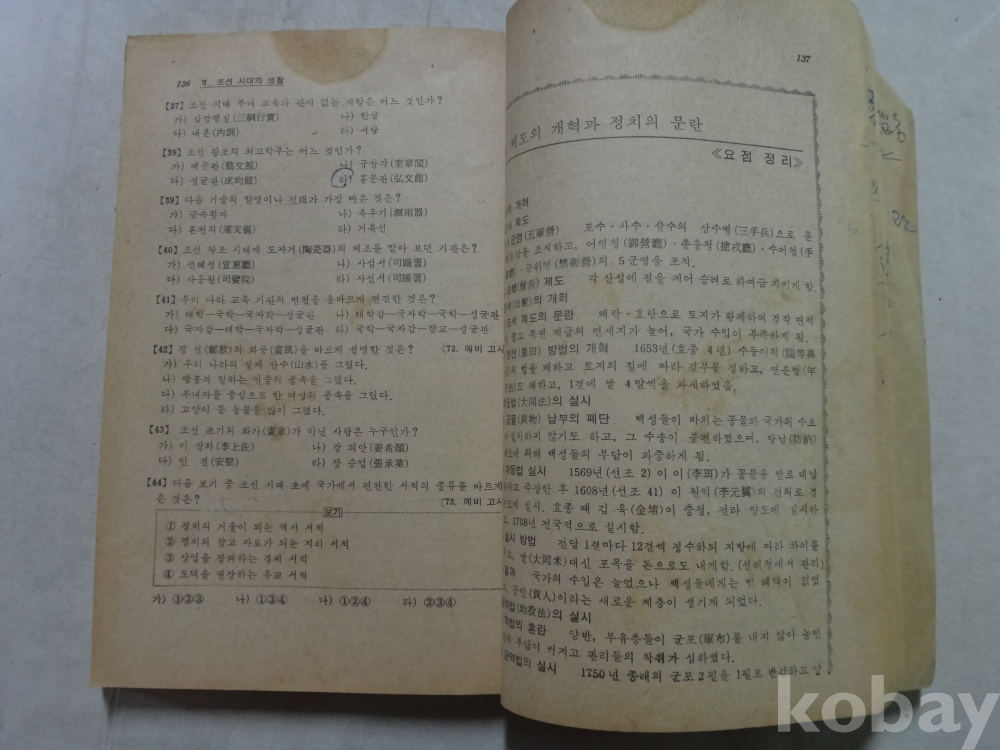 136 Ⅴ. 조선 시대의 생활
【37】 조선 시대 부녀 교육과 관계 없는 사항은 어느 것인가?
가) 삼강행실(三綱行實) 나) 한글
다) 내훈(內訓) 라) 서당
【38】 조선 왕조의 최고학부는 어느 것인가?
가) 예문관(藝文館) 나) 규장각(奎章閣)
다) 성균관(成均館) 라) 홍문관(弘文館)
【39】 다음 기술의 발명이나 전래가 가장 빠른 것은?
가) 금속활자 나) 측우기(測雨器)
다) 혼천의(渾天儀) 라) 거북선
【40】 조선 왕조 시대에 도자기(陶瓷器)의 제조를 맡아 보던 기관은?
가) 선혜청(宣惠廳) 나) 사섬서(司贍署)
다) 사옹원(司饔院) 라) 사선서(司膳署)
【41】 우리 나라 교육 기관의 변천을 올바르게 연결한 것은?
가) 태학—국학—국자학—성균관 나) 태학감—국자학—국학—성균관
다) 국자감—태학—국자학—성균관 라) 국학—국자감—향교—성균관
【42】 정 선(鄭敾)의 화풍(畫風)을 바르게 설명한 것은? (73. 예비 고시
가) 우리 나라의 실제 산수(山水)를 그렸다.
나) 땀흘려 일하는 민중의 풍속을 그렸다.
다) 부녀자를 중심으로 한 여성의 풍속을 그렸다.
라) 고양이 등 동물을 많이 그렸다.
【43】 조선 초기의 화가(畫家)가 아닌 사람은 누구인가?
가) 이 상좌(李上佐) 나) 강 희안(姜希顔)
다) 안 견(安堅) 라) 장 승업(張承業)
【44】 다음 보기 중 조선 시대 초에 국가에서 편찬한 서적의 종류를 바르게
른 것은? (73. 예비 고시
보기
① 정치의 거울이 되는 역사 서적
② 정치의 참고 자료가 되는 지리 서적
③ 상업을 장려하는 경제 서적
④ 도덕을 권장하는 유교 서적
가) ①②③ 나) ①③④ 다) ①②④ 라) ②③④
137
제도의 개혁과 정치의 문란
≪요점 정리≫
개혁
제도
포수·사수·살수의 삼수병(三手兵)으로 훈
을 조직하고, 어영청(御營廳)·총융청(摠戎廳)·수어청(守
·금위영(禁衛營)의 5군영을 조직.
제도 각 산성에 절을 지어 승려로 하여금 지키게 함.
의 개혁
제도의 문란 왜란·호란으로 토지가 황폐하여 경작 면적
줄고 특권 계급의 면세지가 늘어, 국가 수입이 부족하게 됨.
양전(量田) 방법의 개혁 1653년(효종 4년) 수등이척(隨等異
의 법을 폐하고 토지의 질에 따라 결부를 정하고, 연분법(年
도 폐하고, 1결에 쌀 4말씩을 과세하였음.
대동법(大同法)의 실시
공물(貢物) 납부의 폐단 백성들이 바치는 공물과 국가의 수요
일치하지 않기도 하고, 그 수송이 불편하였으며, 방납(防納)
에 의해 백성들의 부담이 과중하게 됨.
대동법 실시 1569년(선조 2) 이 이(李珥)가 공물을 쌀로 대납
주장한 후 1608년(선조 41) 이 원익(李元翼)의 건의로 경
에 실시. 효종 때 김 육(金堉)이 충청, 전라 양도에 실시하
1708년 전국적으로 실시함.
실시 방법 전답 1결마다 12결씩 징수하되 지방에 따라 차이를
고, 쌀(大同米)대신 포목을 돈으로도 내게함. (선혜청에서 관리)
결과 국가의 수입은 늘었으나 백성들에게는 별 혜택이 없었
공인(貢人)이라는 새로운 계층이 생기게 되었다.
균역법(均役法)의 실시
역법의 혼란 양반, 부유층들이 군포(軍布)를 내지 않아 농민
의 부담이 커지고 관리들의 착취가 심하였다.
균역법의 실시 1750년 종래의 군포 2필을 1필로 반감하고 양
kobay